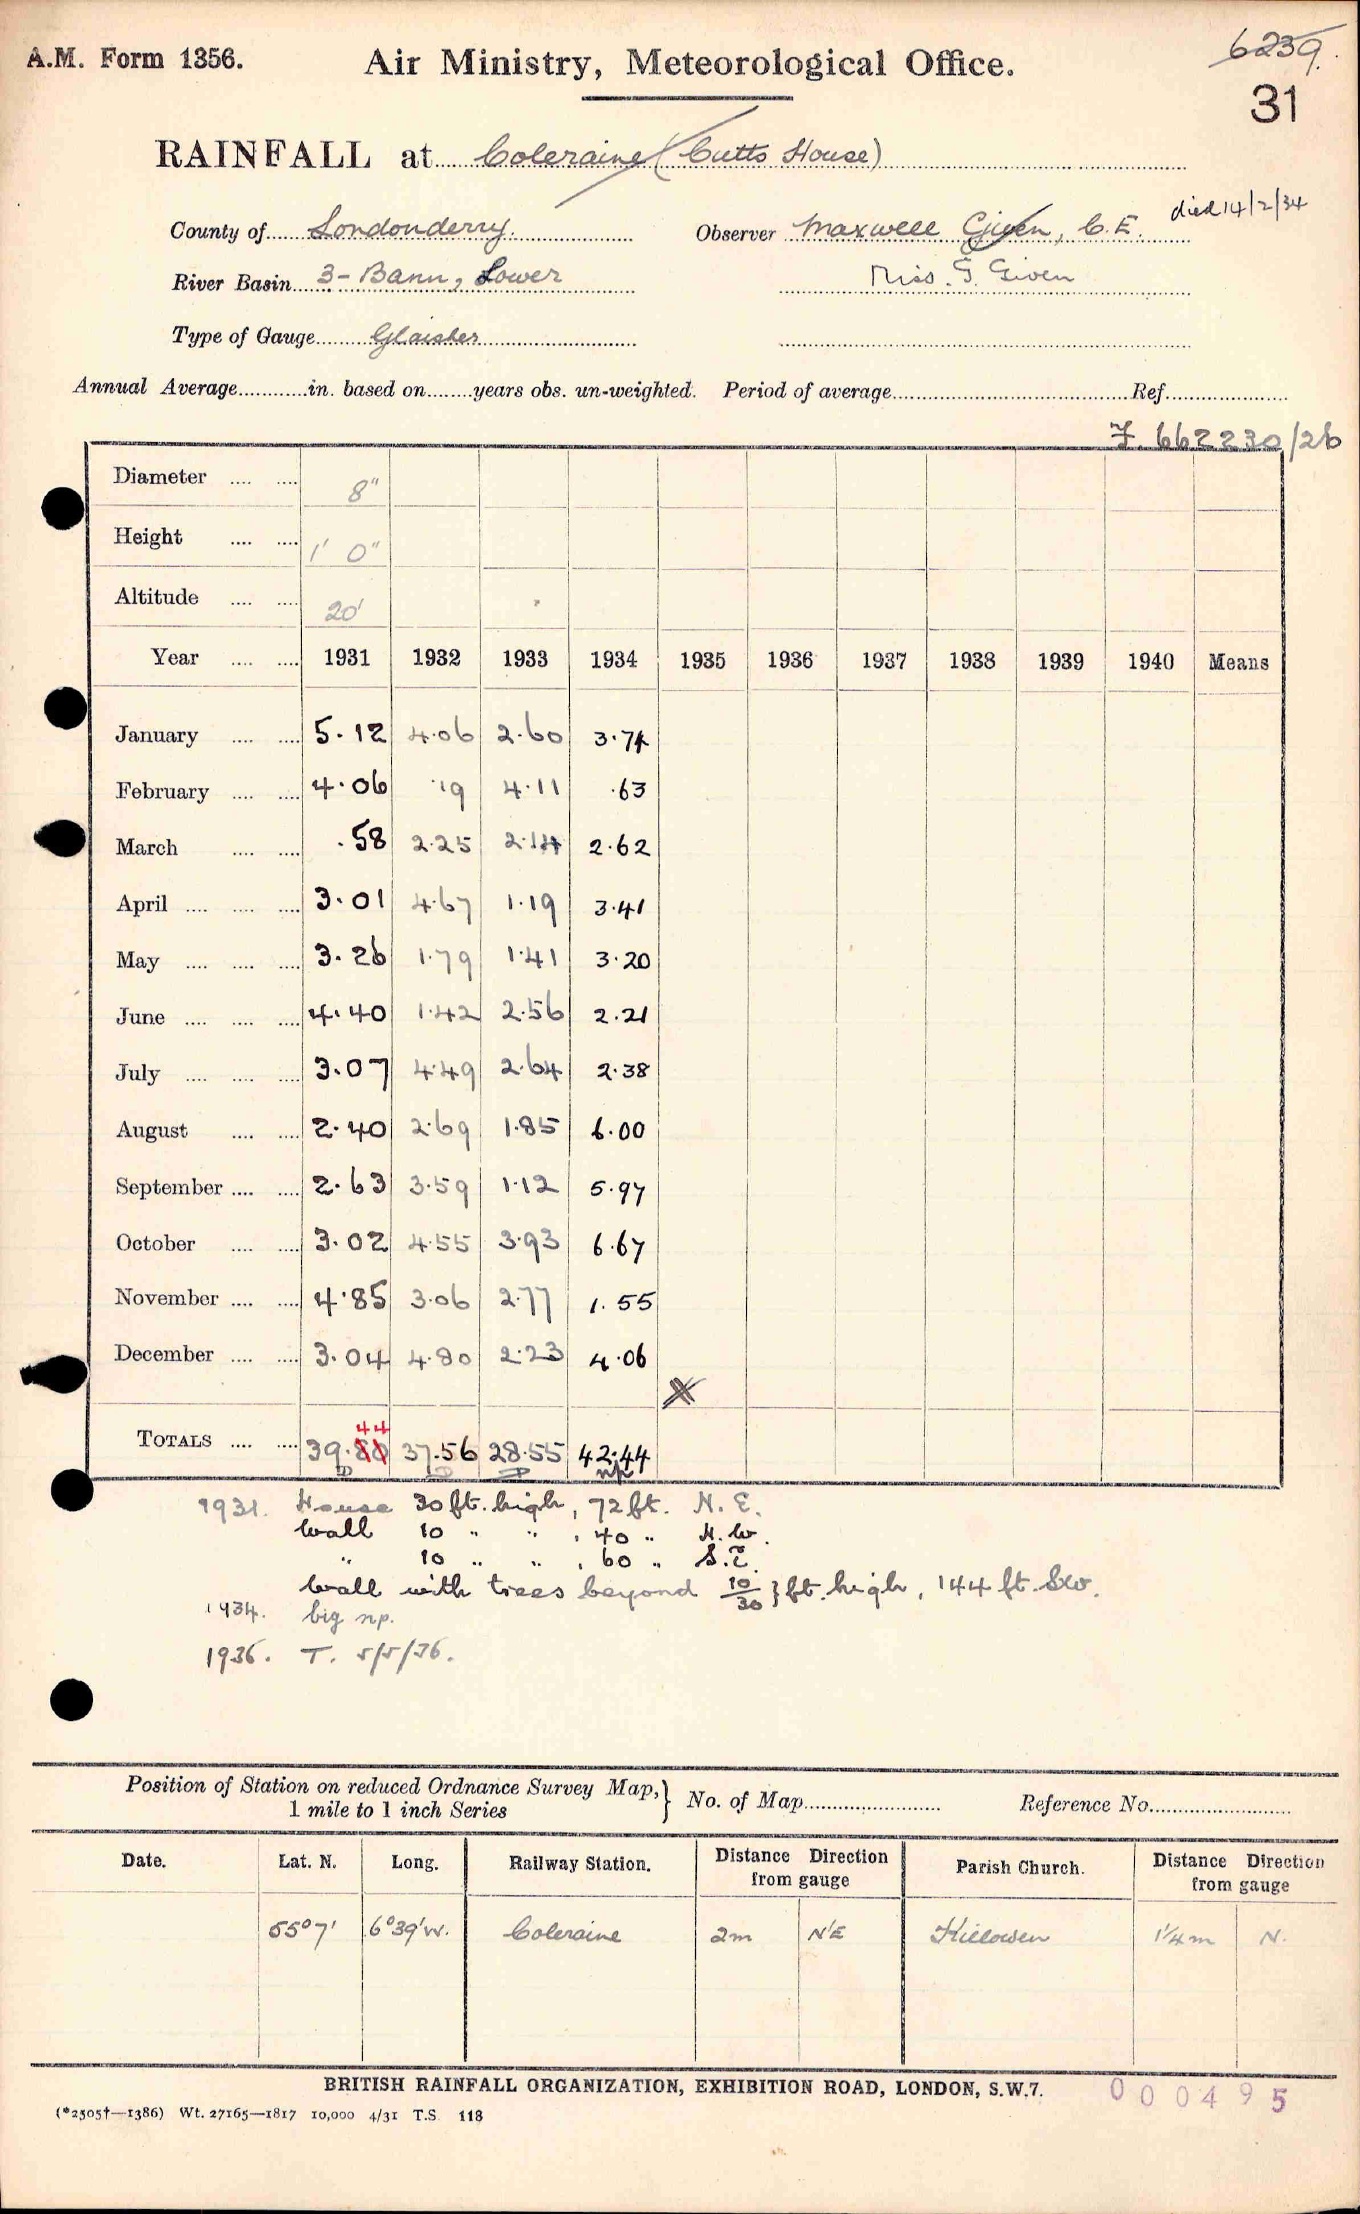 A.M. Form 1356.
Air Ministry, Meteorological Office.
6239.
31
RAINFALL at Coleraine (Cutts House)
died 14/2/34
County of Londonderry. Observer Maxwell Given, C.E.
River Basin 3- Bann, Lower Miss. G. Given
Type of Gauge Glaisher
Annual Average in. based on years obs. un-weighted. Period of average Ref.
F. 662230/26
Diameter 8"
Height 1' 0"
Altitude 20'
Year 1931 1932 1933 1934 1935 1936 1937 1938 1939 1940 Means
January 5.12 4.06 2.60 3.74
February 4.06 .19 4.11 .63
March .58 2.25 2.14 2.62
April 3.01 4.67 1.19 3.41
May 3.26 1.79 1.41 3.20
June 4.40 1.42 2.56 2.21
July 3.07 4.49 2.64 2.38
August 2.40 2.69 1.85 6.00
September 2.63 3.59 1.12 5.97
October 3.02 4.55 3.93 6.67
November 4.85 3.06 2.77 1.55
December 3.04 4.80 2.23 4.06
X
44
TOTALS 39. 37.56 28.55 42.44
np
1931. House 30 ft. high, 72 ft. N.E.
Wall 10 " " , 40 " N.W.
" 10 " " , 60 " S.E.
Wall with trees beyond 10/30 } ft. high, 144 ft. SW.
1934. big np.
1936. T. 5/5/36.
Position of Station on reduced Ordnance Survey Map,} No. of Map Reference No.
1 mile to 1 inch Series
Date. Lat. N. Long. Railway Station. Distance Direction from gauge Parish Church. Distance Direction from gauge
55°7' 6°39'W. Coleraine 2m N'E Killowen 1¼m N.
BRITISH RAINFALL ORGANIZATION, EXHIBITION ROAD, LONDON, S.W.7.
000495
(*2505†—1386) Wt. 27165—1817 10,000 4/31 T.S. 118